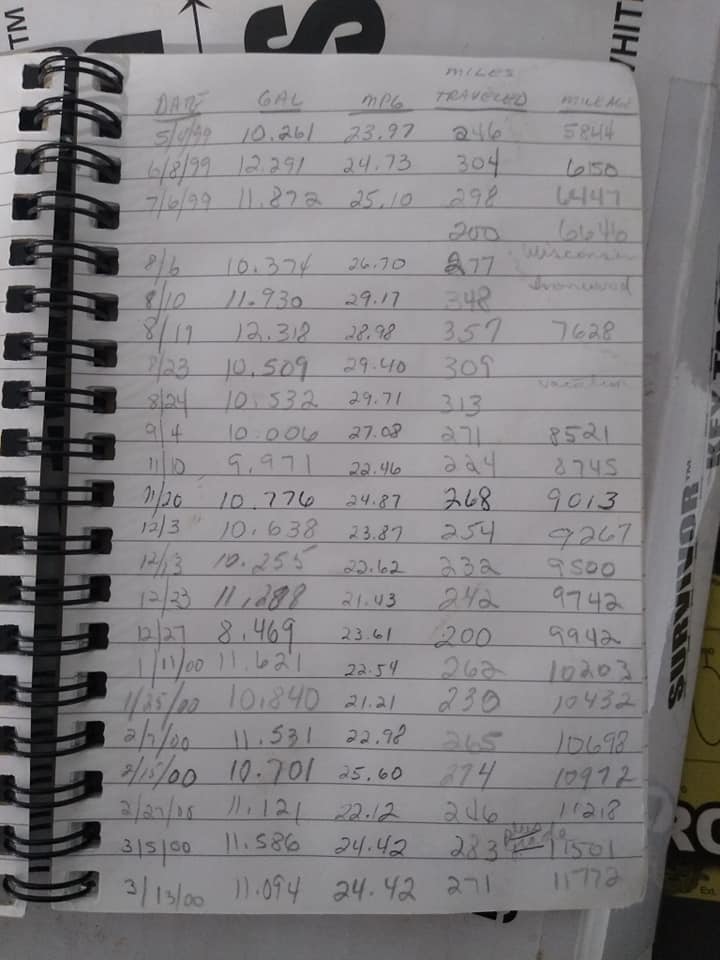 TM
S
WHIT
MILES
DATE GAL MPG TRAVELED MILEAGE
5/9/99 10.261 23.97 246 5844
6/8/99 12.291 24.73 304 6150
7/6/99 11.872 25.10 298 6447
200 6646
8/6 10.374 26.70 277 Wisconsin
8/10 11.930 29.17 348
8/19 12.318 28.98 357 7628
8/23 10.509 29.40 309
vacation
8/24 10.532 29.71 313
9/4 10.006 27.08 271 8521
11/10 9.971 22.46 224 8745
11/20 10.776 24.87 268 9013
12/3 10.638 23.87 254 9267
12/13 10.255 22.62 232 9500
12/23 11.288 21.43 242 9742
12/27 8.469 23.61 200 9942
1/11/00 11.621 22.54 262 10203
1/25/00 10.840 21.21 230 10432
2/7/00 11.531 22.98 265 10698
2/15/00 10.701 25.60 274 10972
2/27/00 11.121 22.12 246 11218
3/5/00 11.586 24.42 283 11501
3/13/00 11.094 24.42 271 11772
SURVIVOR™